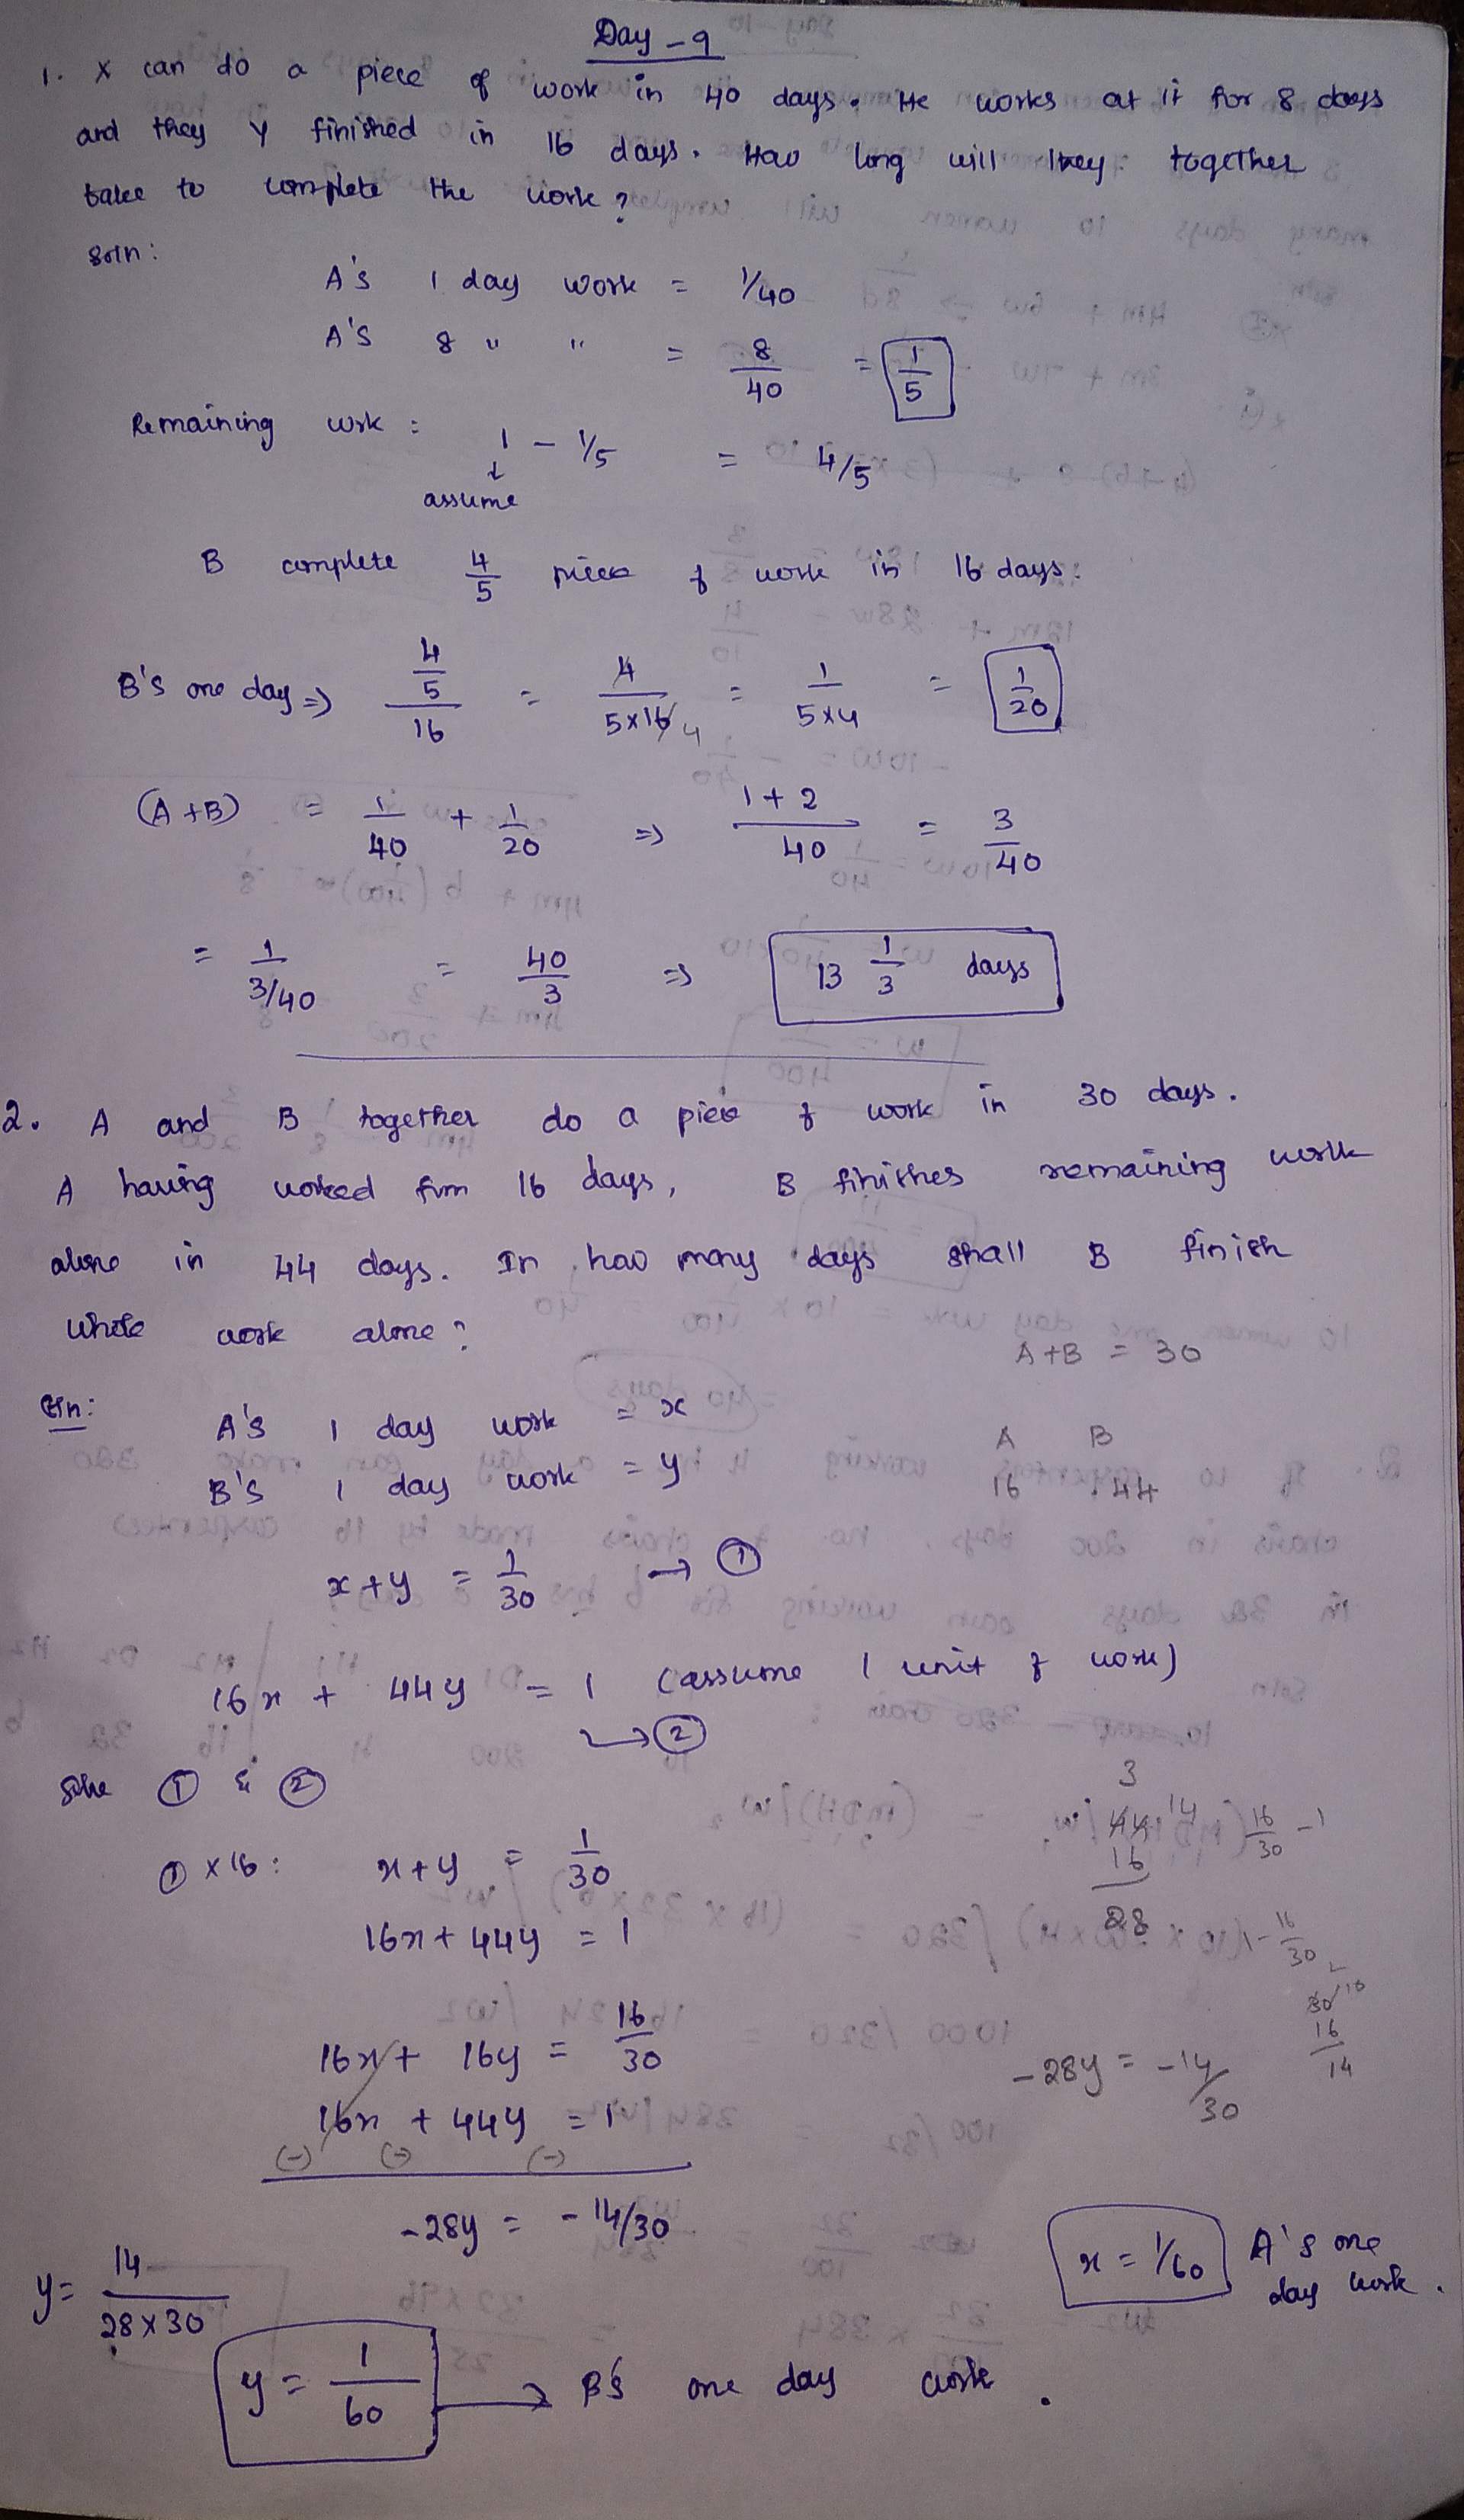 Day - 9
1. X can do a piece of work in 40 days. He works at it for 8 days
and they Y finished in 16 days. How long will they together
take to complete the work?
Soln:
A's 1 day work = 1/40
A's 8 " " = 8/40 = 1/5
Remaining wrk : 1 - 1/5 = 4/5
↓
assume
B complete 4/5 piece of work in 16 days.
B's one day => 4/5 / 16 = 4 / 5x16 4 = 1 / 5x4 = 1/20
(A+B) = 1/40 + 1/20 => 1+2 / 40 = 3/40
= 1 / 3/40 = 40/3 => 13 1/3 days
2. A and B together do a piece of work in 30 days.
A having worked 16 days, B finishes remaining work
alone in 44 days. In how many days shall B finish
whole work alone?
A+B = 30
Soln:
A's 1 day work = x
B's 1 day work = y
A B
16 44
x+y = 1/30 → ①
16x + 44y = 1 (assume 1 unit of work)
→ ②
Solve ① & ②
① x 16 : x+y = 1/30
16x + 44y = 1
3
44 14
16
28
16/30 - 1
1 - 16/30
16x + 16y = 16/30
16x + 44y = 1
(-) (-) (-)
-28y = -14/30
30 10
16
14
-28y = -14/30
y = 14 / 28x30
x = 1/60 A's one
day work.
y = 1/60 → B's one day work.